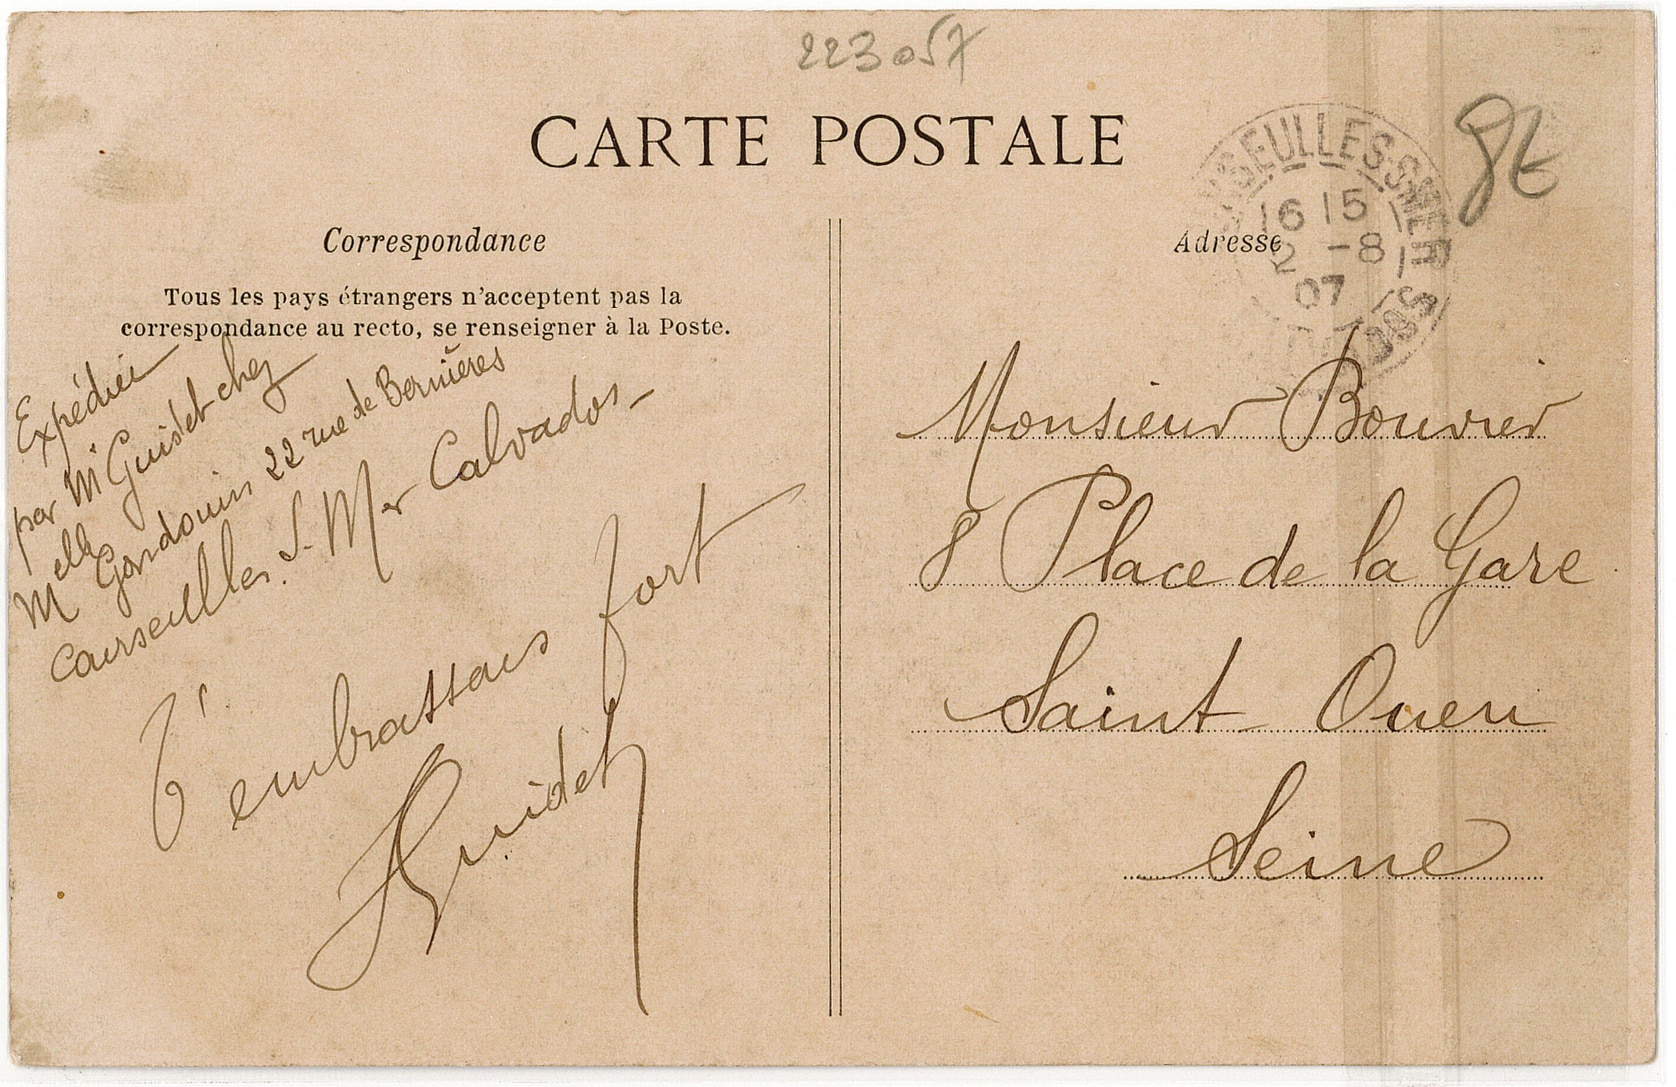 223057
CARTE POSTALE
8E
COURSEULLES-S-MER
16 15
2 -8
07
CALVADOS
Correspondance
Tous les pays étrangers n'acceptent pas la
correspondance au recto, se renseigner à la Poste.
Expédiée
par Mr Guidet chez
Melle Gondouin 22 rue de Bernières
Courseulles. S. Mer Calvados
T'embrassons fort
Guidet
Adresse
Monsieur Bouvier
8 Place de la Gare
Saint Ouen
Seine